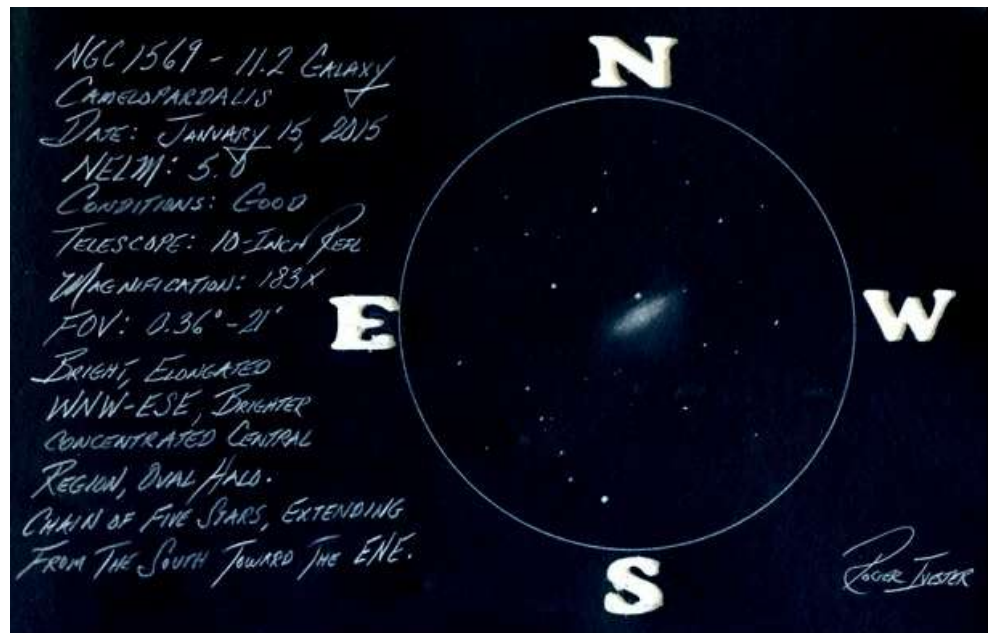 NGC 1569 - 11.2 GALAXY
CAMELOPARDALIS
DATE: JANUARY 15, 2015
NELM: 5.0
CONDITIONS: GOOD
TELESCOPE: 10-INCH REFL
MAGNIFICATION: 183X
FOV: 0.36° - 21'
BRIGHT, ELONGATED
WNW-ESE, BRIGHTER
CONCENTRATED CENTRAL
REGION, OVAL HALO.
CHAIN OF FIVE STARS, EXTENDING
FROM THE SOUTH TOWARD THE ENE.
N
E
W
S
ROGER IVESTER